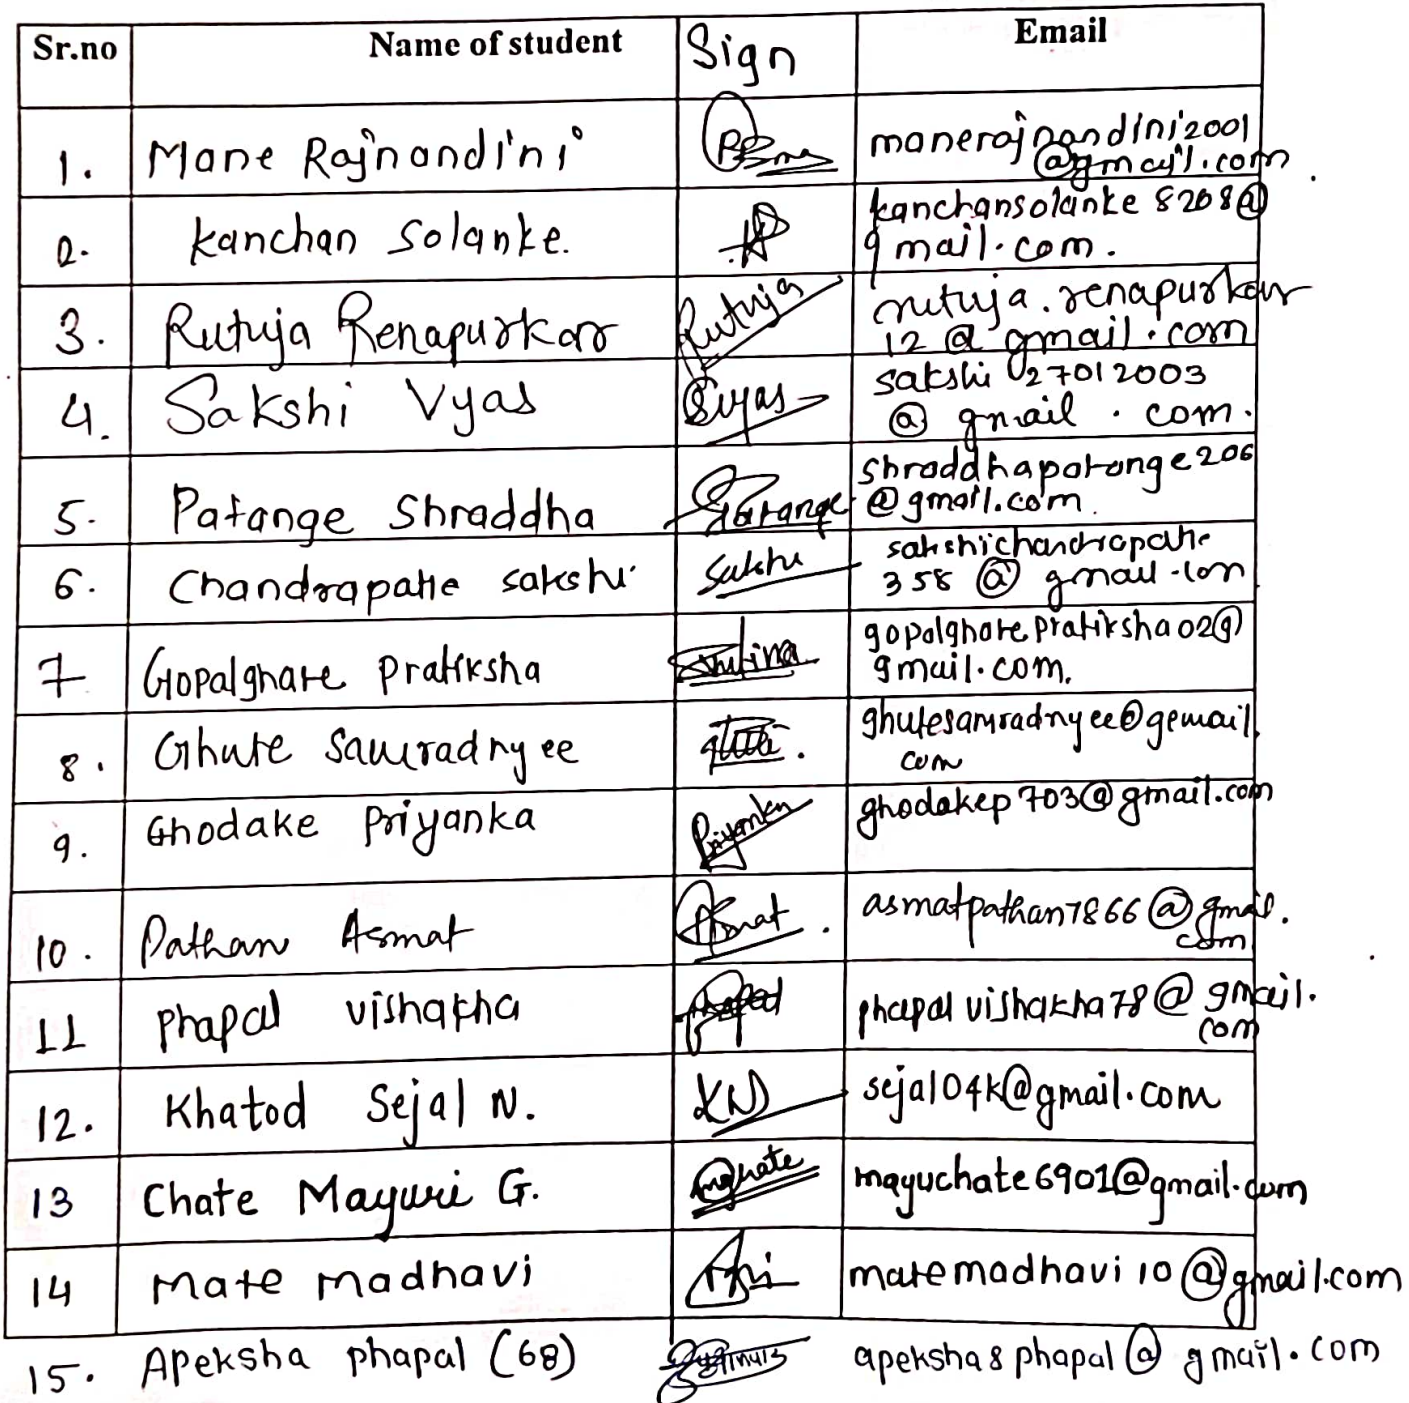 Sr.no Name of student Sign Email
1. Mane Rajnandini manerajnandini2001
@gmail.com
2. Kanchan Solanke. kanchansolanke8208@
gmail.com.
3. Rutuja Renapurkar Rutuja rutuja.renapurkar
12@gmail.com
4. Sakshi Vyas Svyas sakshi27012003
@gmail.com.
5. Patange Shraddha Patange shraddhapatange206
@gmail.com.
6. Chandrapatle sakshi Sakshi sakshichandrapatle
358@gmail.com
7 Gopalghare Pratiksha gopalgharepratiksha02@
gmail.com.
8. Ghute Samradnyee ghutesamradnyee@gemail.
com
9. Ghodake Priyanka Priyanka ghodakep703@gmail.com
10. Pathan Asmat Asmat. asmatpathan7866@gmail.
com
11 phapal vishakha phapal phapalvishakha78@gmail.
com
12. Khatod Sejal N. KN sejal04k@gmail.com
13 Chate Mayuri G. mayuchate6901@gmail.com
14 Mate Madhavi matemadhavi10@gmail.com
15. Apeksha phapal (68) apeksha8phapal@gmail.com